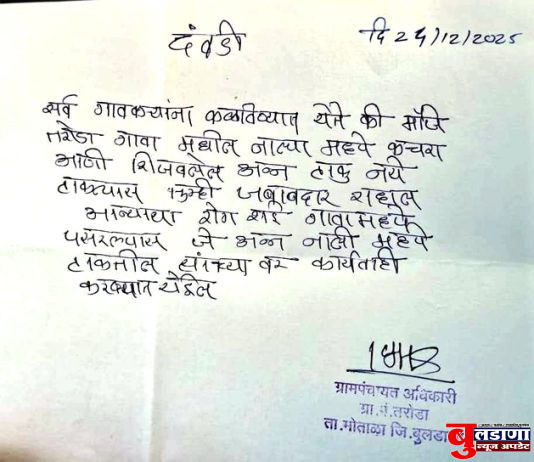 दवंडी
दि 25/12/2025
सर्व गावकऱ्यांना कळविण्यात येते की
तरोडा गावा मधील नाल्या मध्ये कचरा
आणी शिजवलेल अन्न टाकु नये
टाकल्यास तुम्ही जबाबदार राहाल
रोग राई गावा मध्ये
पसरल्यास जे अन्न नाली मध्ये
टाकतील यांच्या वर कार्यवाही
करण्यात येईल
ग्रामपंचायत अधिकारी
ग्रा.पं.तरोडा
ता.मोताळा जि.बुलडा
बुलडाणा
न्यूज अपडेट